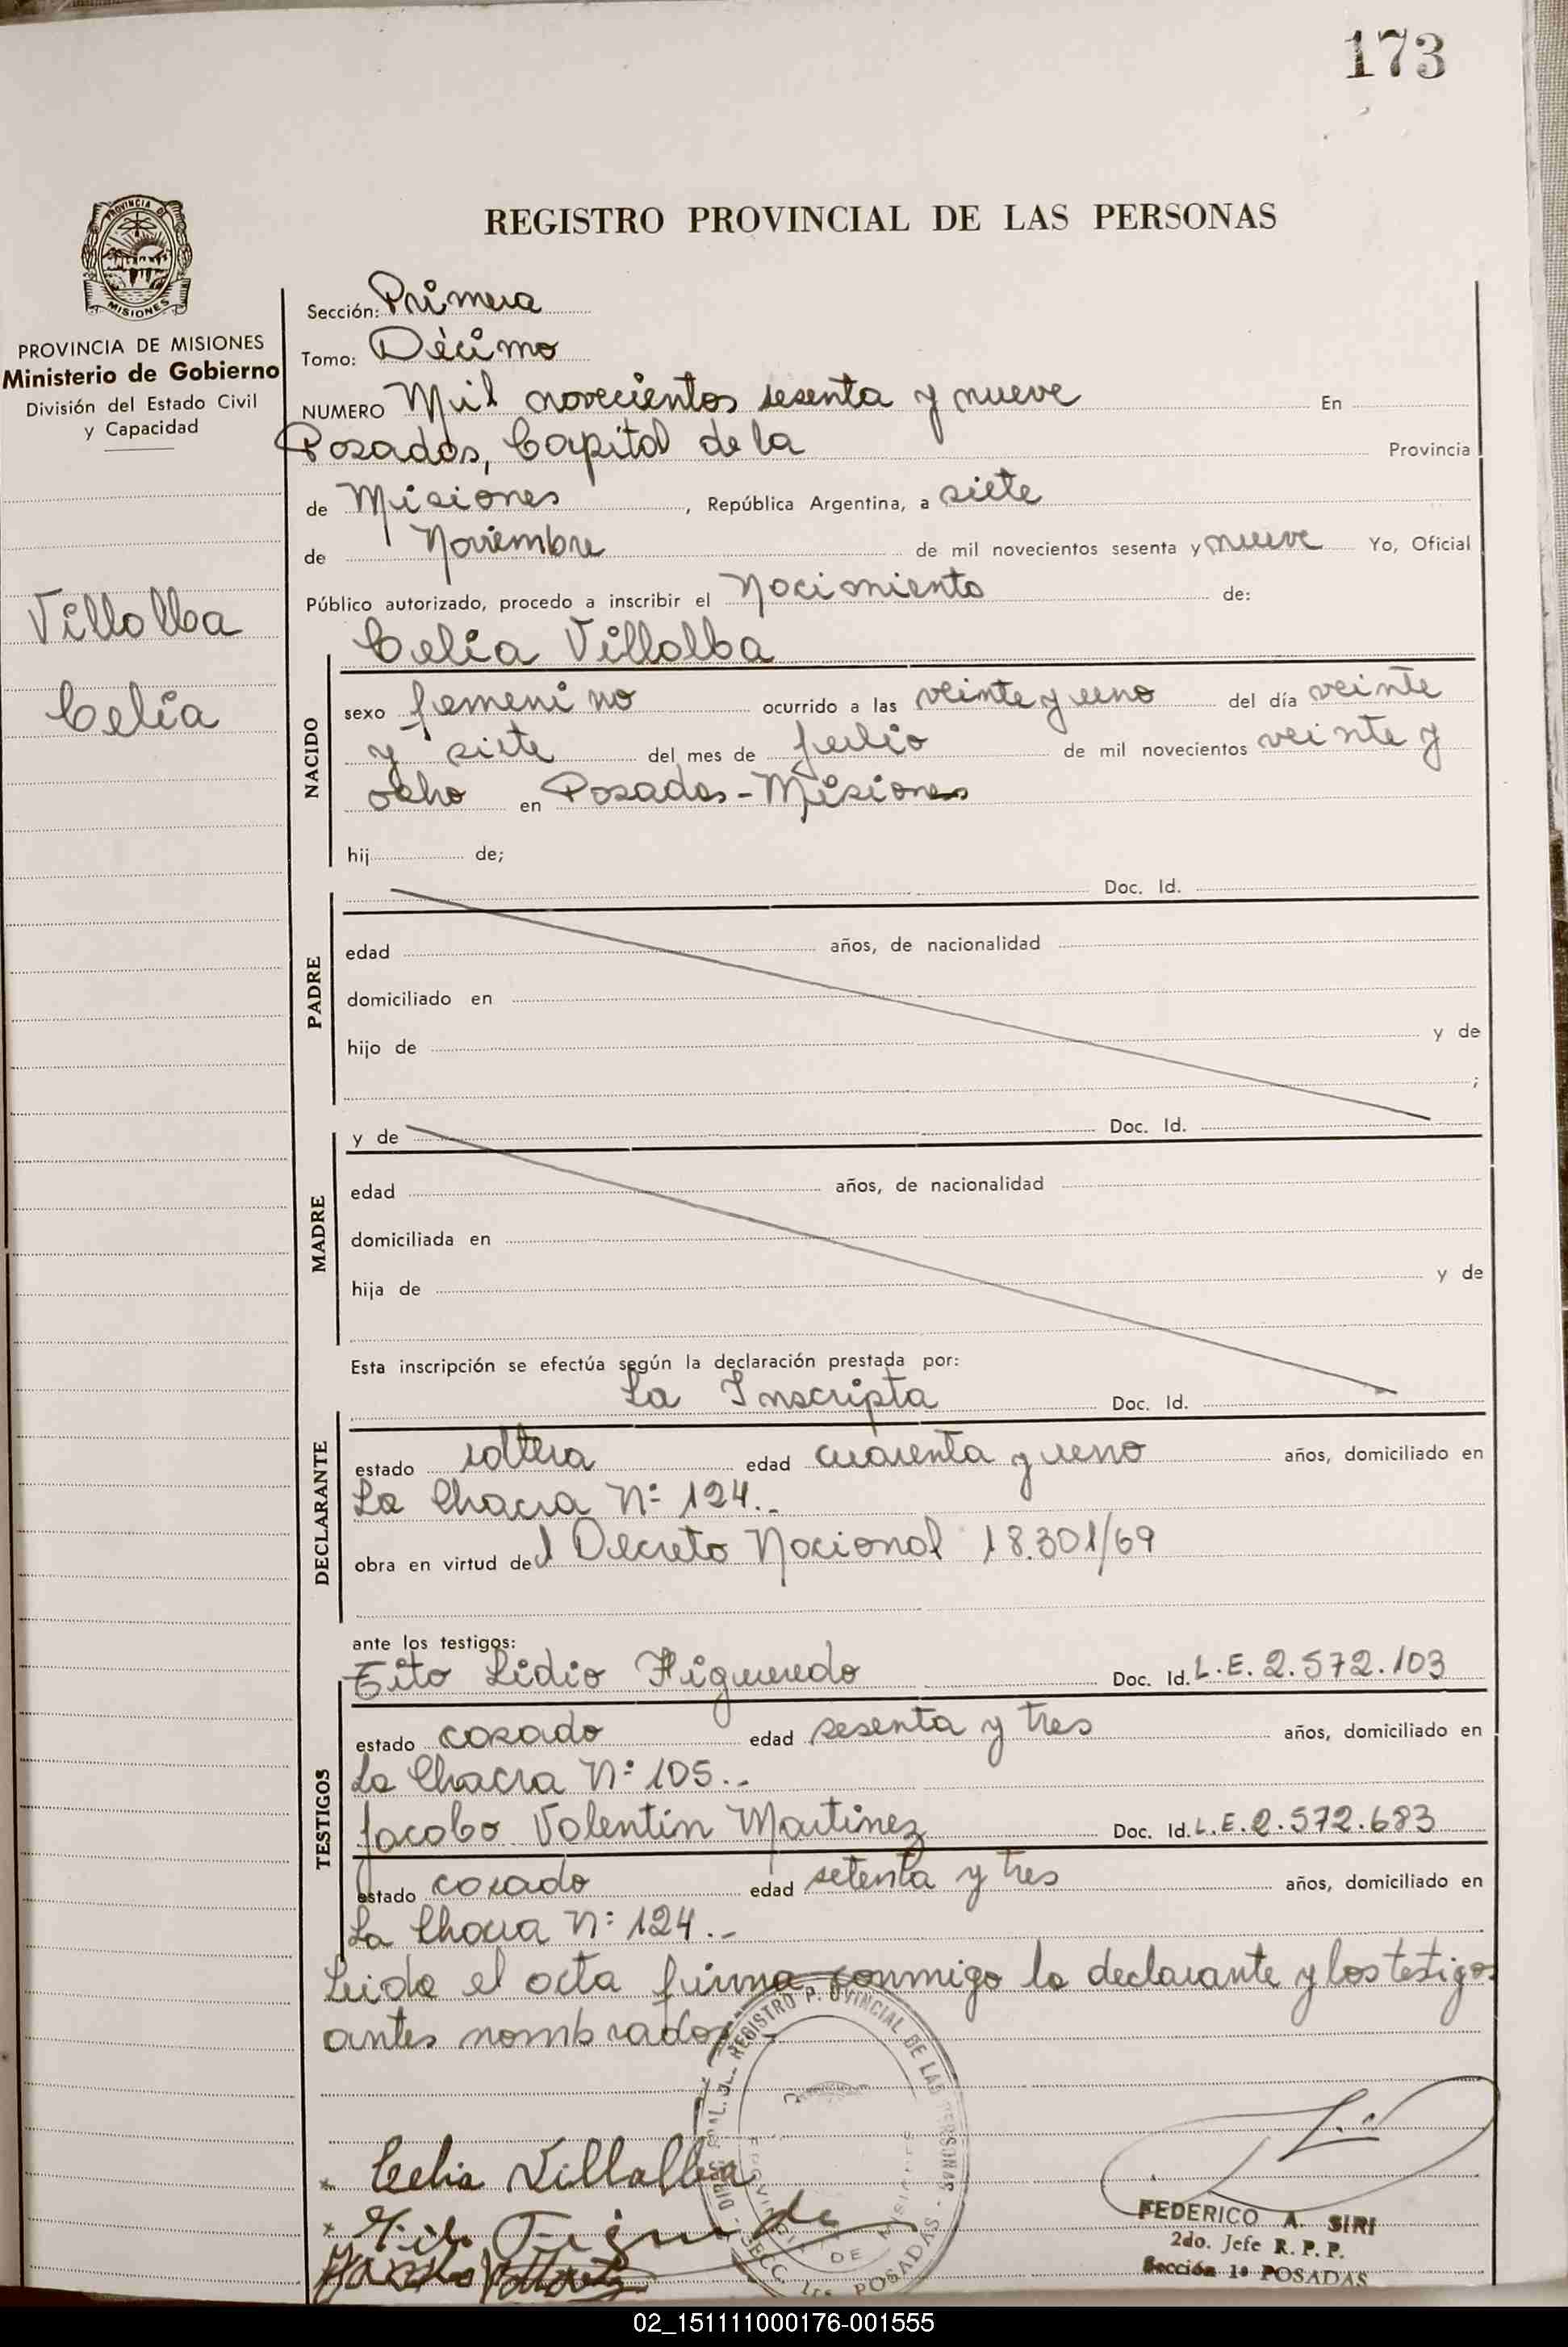 173
PROVINCIA DE
MISIONES
REGISTRO PROVINCIAL DE LAS PERSONAS
PROVINCIA DE MISIONES
Ministerio de Gobierno
División del Estado Civil
y Capacidad
Villalba
Celia
Sección: Primera
Tomo: Décimo
NUMERO Mil novecientos sesenta y nueve En
Posadas, Capital de la Provincia
de Misiones, República Argentina, a siete
de Noviembre de mil novecientos sesenta y nueve Yo, Oficial
Público autorizado, procedo a inscribir el Nacimiento de:
Celia Villalba
NACIDO
sexo femenino ocurrido a las veinte y uno del día veinte
y siete del mes de julio de mil novecientos veinte y
ocho en Posadas - Misiones
hij de;
PADRE
Doc. Id.
edad años, de nacionalidad
domiciliado en
hijo de y de
;
MADRE
y de Doc. Id.
edad años, de nacionalidad
domiciliada en
hija de y de
Esta inscripción se efectúa según la declaración prestada por:
La Inscripta Doc. Id.
DECLARANTE
estado soltera edad cuarenta y uno años, domiciliado en
La Chacra Nº 124.-
obra en virtud del Decreto Nacional 18.301/69
ante los testigos:
Tito Lidio Figueredo Doc. Id. L.E. 2.572.103
TESTIGOS
estado casado edad sesenta y tres años, domiciliado en
La Chacra Nº 105.-
Jacobo Valentin Martinez Doc. Id. L.E. 2.572.683
estado casado edad setenta y tres años, domiciliado en
La Chacra Nº 124.-
Leida el acta firma conmigo la declarante y los testigos
antes nombrados.-
REGISTRO PROVINCIAL DE LAS PERSONAS
PROVINCIA DE MISIONES
SECC. 1ra POSADAS
Celia Villalba
FEDERICO A. SIRI
2do. Jefe R. P. P.
Sección 1ª POSADAS
02_151111000176-001555